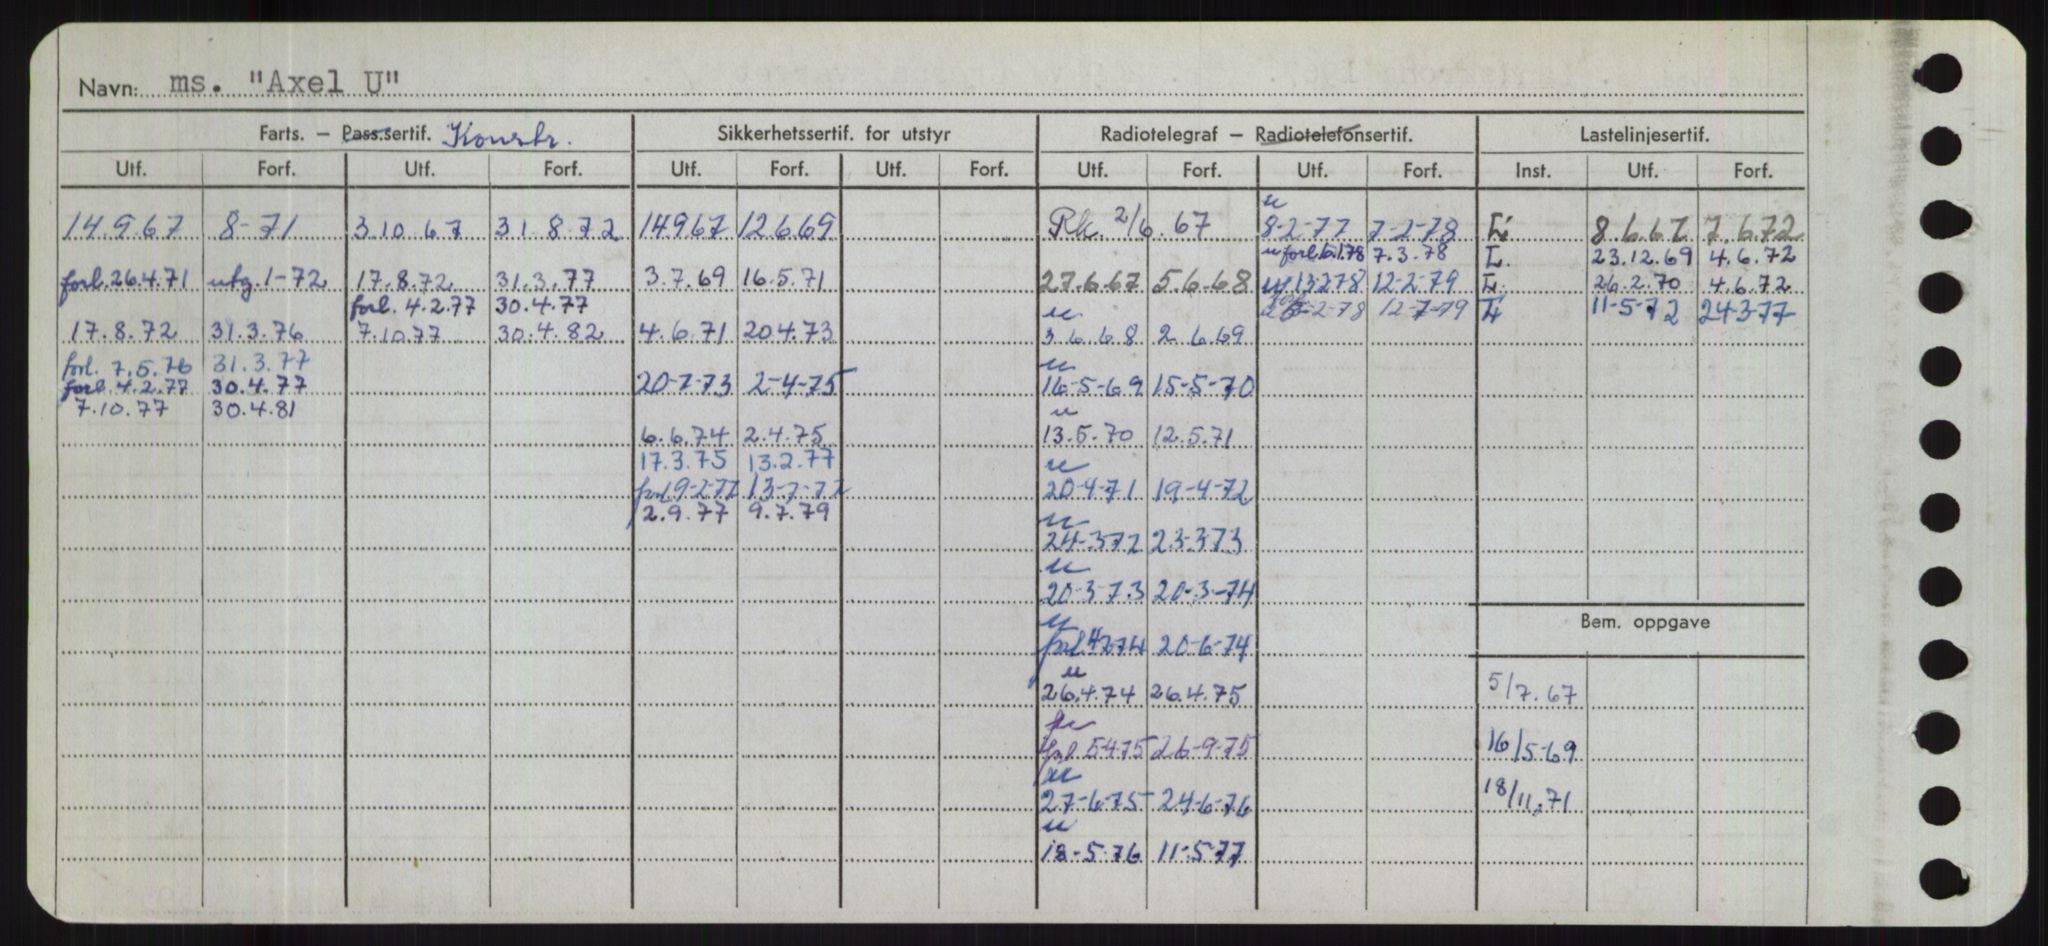 Navn: ms. "Axel U"
Farts. – Pass.sertif. Konstr. Sikkerhetssertif. for utstyr Radiotelegraf – Radiotelefonsertif. Lastelinjesertif.
Utf. Forf. Utf. Forf. Utf. Forf. Utf. Forf. Utf. Forf. Utf. Forf. Inst. Utf. Forf.
u
14.9.67 8-71 3.10.67 31.8.72 14967 12.6.69 Rk. 2/6.67 8-2-77 7-2-78 L 8.6.67 7.6.72
u forl. 6.1.78 7.3.78 L. 23.12.69 4.6.72
forl. 26.4.71 utg. 1-72 17.8.72 31.3.77 3.7.69 16.5.71 27.6.67 5.6.68 u 13278 12-2-79 L. 26.2.70 4.6.72
forl. 4.2.77 30.4.77 u 12-7-79 L 11-5-72 24-3-77
17.8.72 31.3.76 7.10.77 30.4.82 4.6.71 20.4.73 3.6.68 2.6.69
forl. 7.5.76 31.3.77 u
forl. 4.2.77 30.4.77 20-7-73 2-4-75 16-5-69 15-5-70
7.10.77 30.4.81 u
6.6.74 2.4.75 13.5.70 12.5.71
17.3.75 13.2.77 u
forl 9-2-77 13-7-77 20-4-71 19-4-72
2.9.77 9.7.79 u
24-372 23-373
u
20-3-73 20-3-74
u
forl 4274 20-6-74
Bem. oppgave
u
26.4.74 26.4.75 5/7.67
forl 5-4-75 26-9-75 16/5-69
u
27-6-75 24-6-76 18/11.71
u
18-5-76 11-5-77